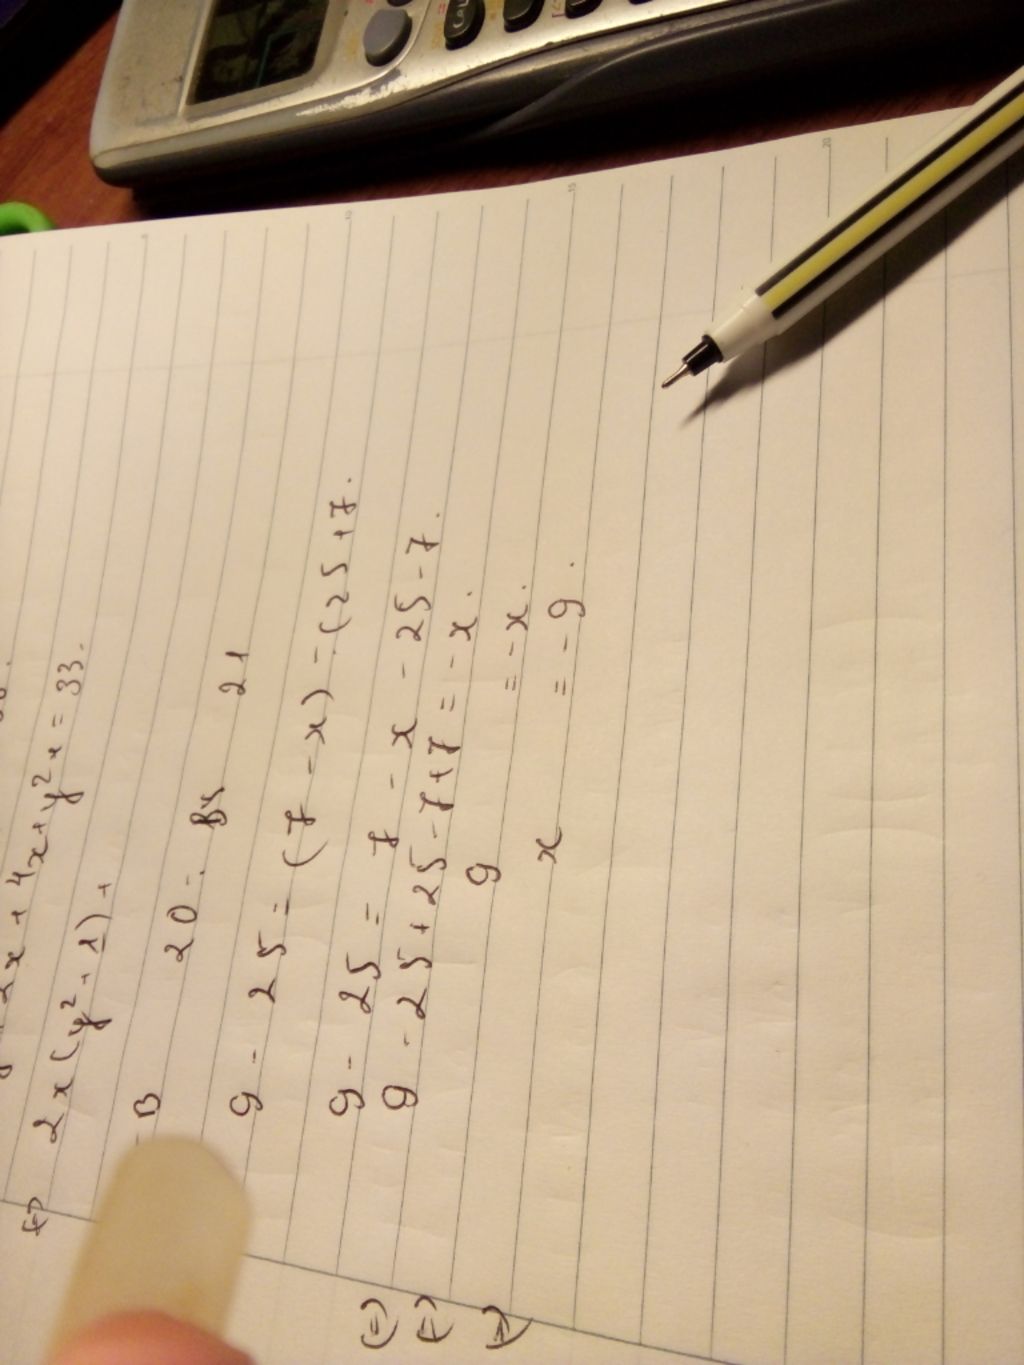 2x + 4x + y² + = 33.
(+) 2x(y² + 1) +
B 20 : BS 21
9 - 25 = (7 - x) - (25 + 7.
9 - 25 = 7 - x - 25 - 7.
(=) 9 - 25 + 25 - 7 + 7 = - x.
9 = - x.
x = - 9.